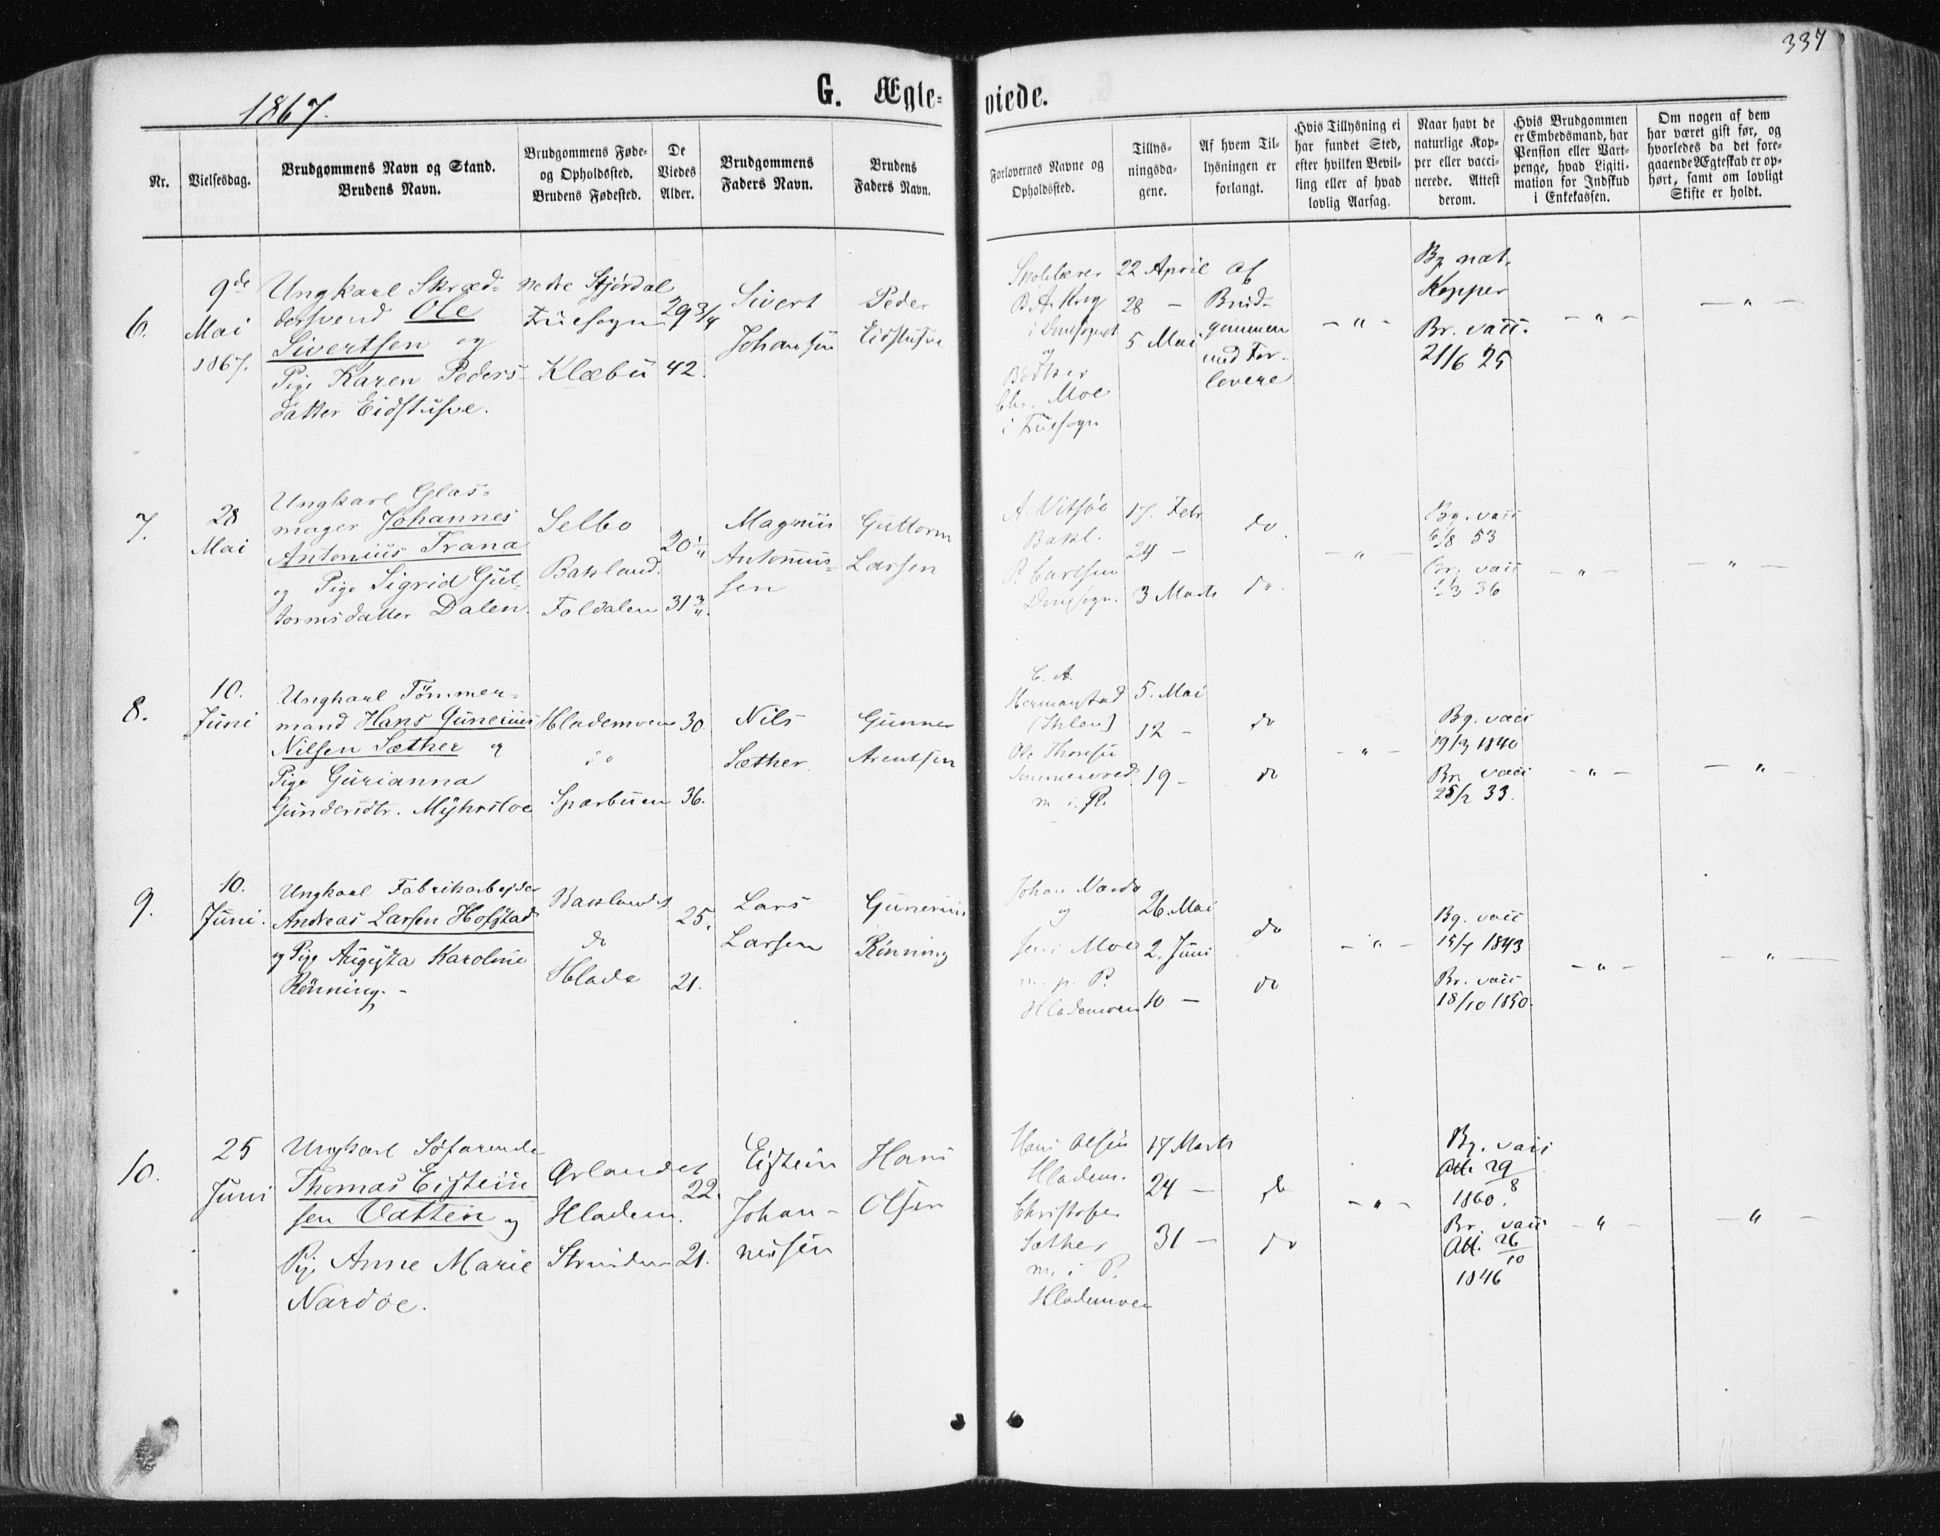 337
1867.
G. Ægte-
viede.
Nr.
Vielsesdag.
Brudgommens Navn og Stand.
Brudens Navn.
Brudgommens Føde-
og Opholdssted.
Brudens Fødested.
De
Viedes
Alder.
Brudgommens
Faders Navn.
Brudens
Faders Navn.
Forlovernes Navne og
Opholdssted.
Tillys-
ningsda-
gene.
Af hvem Til-
lysningen er
forlangt.
Hvis Tillysning ei
har fundet Sted,
efter hvilken Bevil-
ling eller af hvad
lovlig Aarsag.
Naar havt de
naturlige Kop-
per eller vacci-
nerede. Attest
derom.
Hvis Brudgommen
er Embedsmand, har
Pension eller Vart-
penge, hvad Ligiti-
mation for Indskud
i Enkekassen.
Om nogen af dem
har været gift før, og
hvorledes da det fore-
gaaende Ægteskab er op-
hørt, samt om lovligt
Skifte er holdt.
6.
9de
Mai
1867.
Ungkarl Skræd-
dersvend Ole
Sivertsen og
Pige Karen Peders-
datter Eidstusve.
Nedre Stjørdal
Fruesogn
Klæbu
29 3/4
42.
Sivert
Johansen
Peder
Eidstusve
Skolelærer
B. A. Krog
i Domsognet
og
Bødker
Chr. Moe
i Fruesogn
22 April
28 —
5 Mai
af
Brud-
gommen
med For-
lovere
— " —
Bg nat.
Kopper
Br. vacc.
21/6 25
— " —
— " —
7.
28
Mai
Ungkarl Glas-
mager Johannes
Antonius Trana
og Pige Sigrid Gut-
tormsdatter Dalen.
Selbo
Bakland.
Foldalen
20
31
Magnus
Antonius-
sen
Guttorm
Larsen
A. Vitsøe
Bakl.
P. Carlsen
Domsogn.
17. Febr
24 —
3 Marts
do.
do.
— " —
Bg. vacc
6/8 53
Br. vacc
1/3 36
— " —
— " —
8.
10.
Juni
Ungkarl Tömmer-
mand Hans Gunerius
Nilsen Sæther og
Pige Gurianna
Gundersdtr. Myhrsloe
Hlademoen
do
Sparbuen
30
36.
Nils
Sæther.
Gunner
Arentsen
C. A.
Hermanstad
(Ihlen)
Ole Thoresen
m. i. P.
5. Mai
12 —
19 —
do
do
— " —
Bg. vacc
19/3 1840
Br. vacc
25/2 33.
— " —
— " —
9.
10.
Juni.
Ungkarl Fabrikarbejder
Andreas Larsen Hofstad
og Pige Augusta Karoline
Rönning. -
Baklandet
do
Hlade
25.
21.
Lars
Larsen
Gunerius
Rönning
Johan Nardo
og
Jens Moe
m. p. P.
Hlademoen
26. Mai
2. Juni
10 —
do
do
— " —
Bg. vacc
15/7 1843
Br. vacc
18/10 1850.
— " —
— " —
10.
25
Juni
Ungkarl Söfarende
Thomas Eistein
sen Vatten og
Pig. Anne Marie
Nardoe.
Ørlandet
Hladem.
Strinden
22.
21.
Eistein
Johan-
nessen
Hans
Olsen
Hans Olsen
Hladem.
Christofer
Sæther
m. i P.
Hlademoen
17 Marts
24 —
31 —
do
do
— " —
Bg. vacc
Att. 29/8
1860.
Br. vacc
Att. 26/10
1846
— " —
— " —